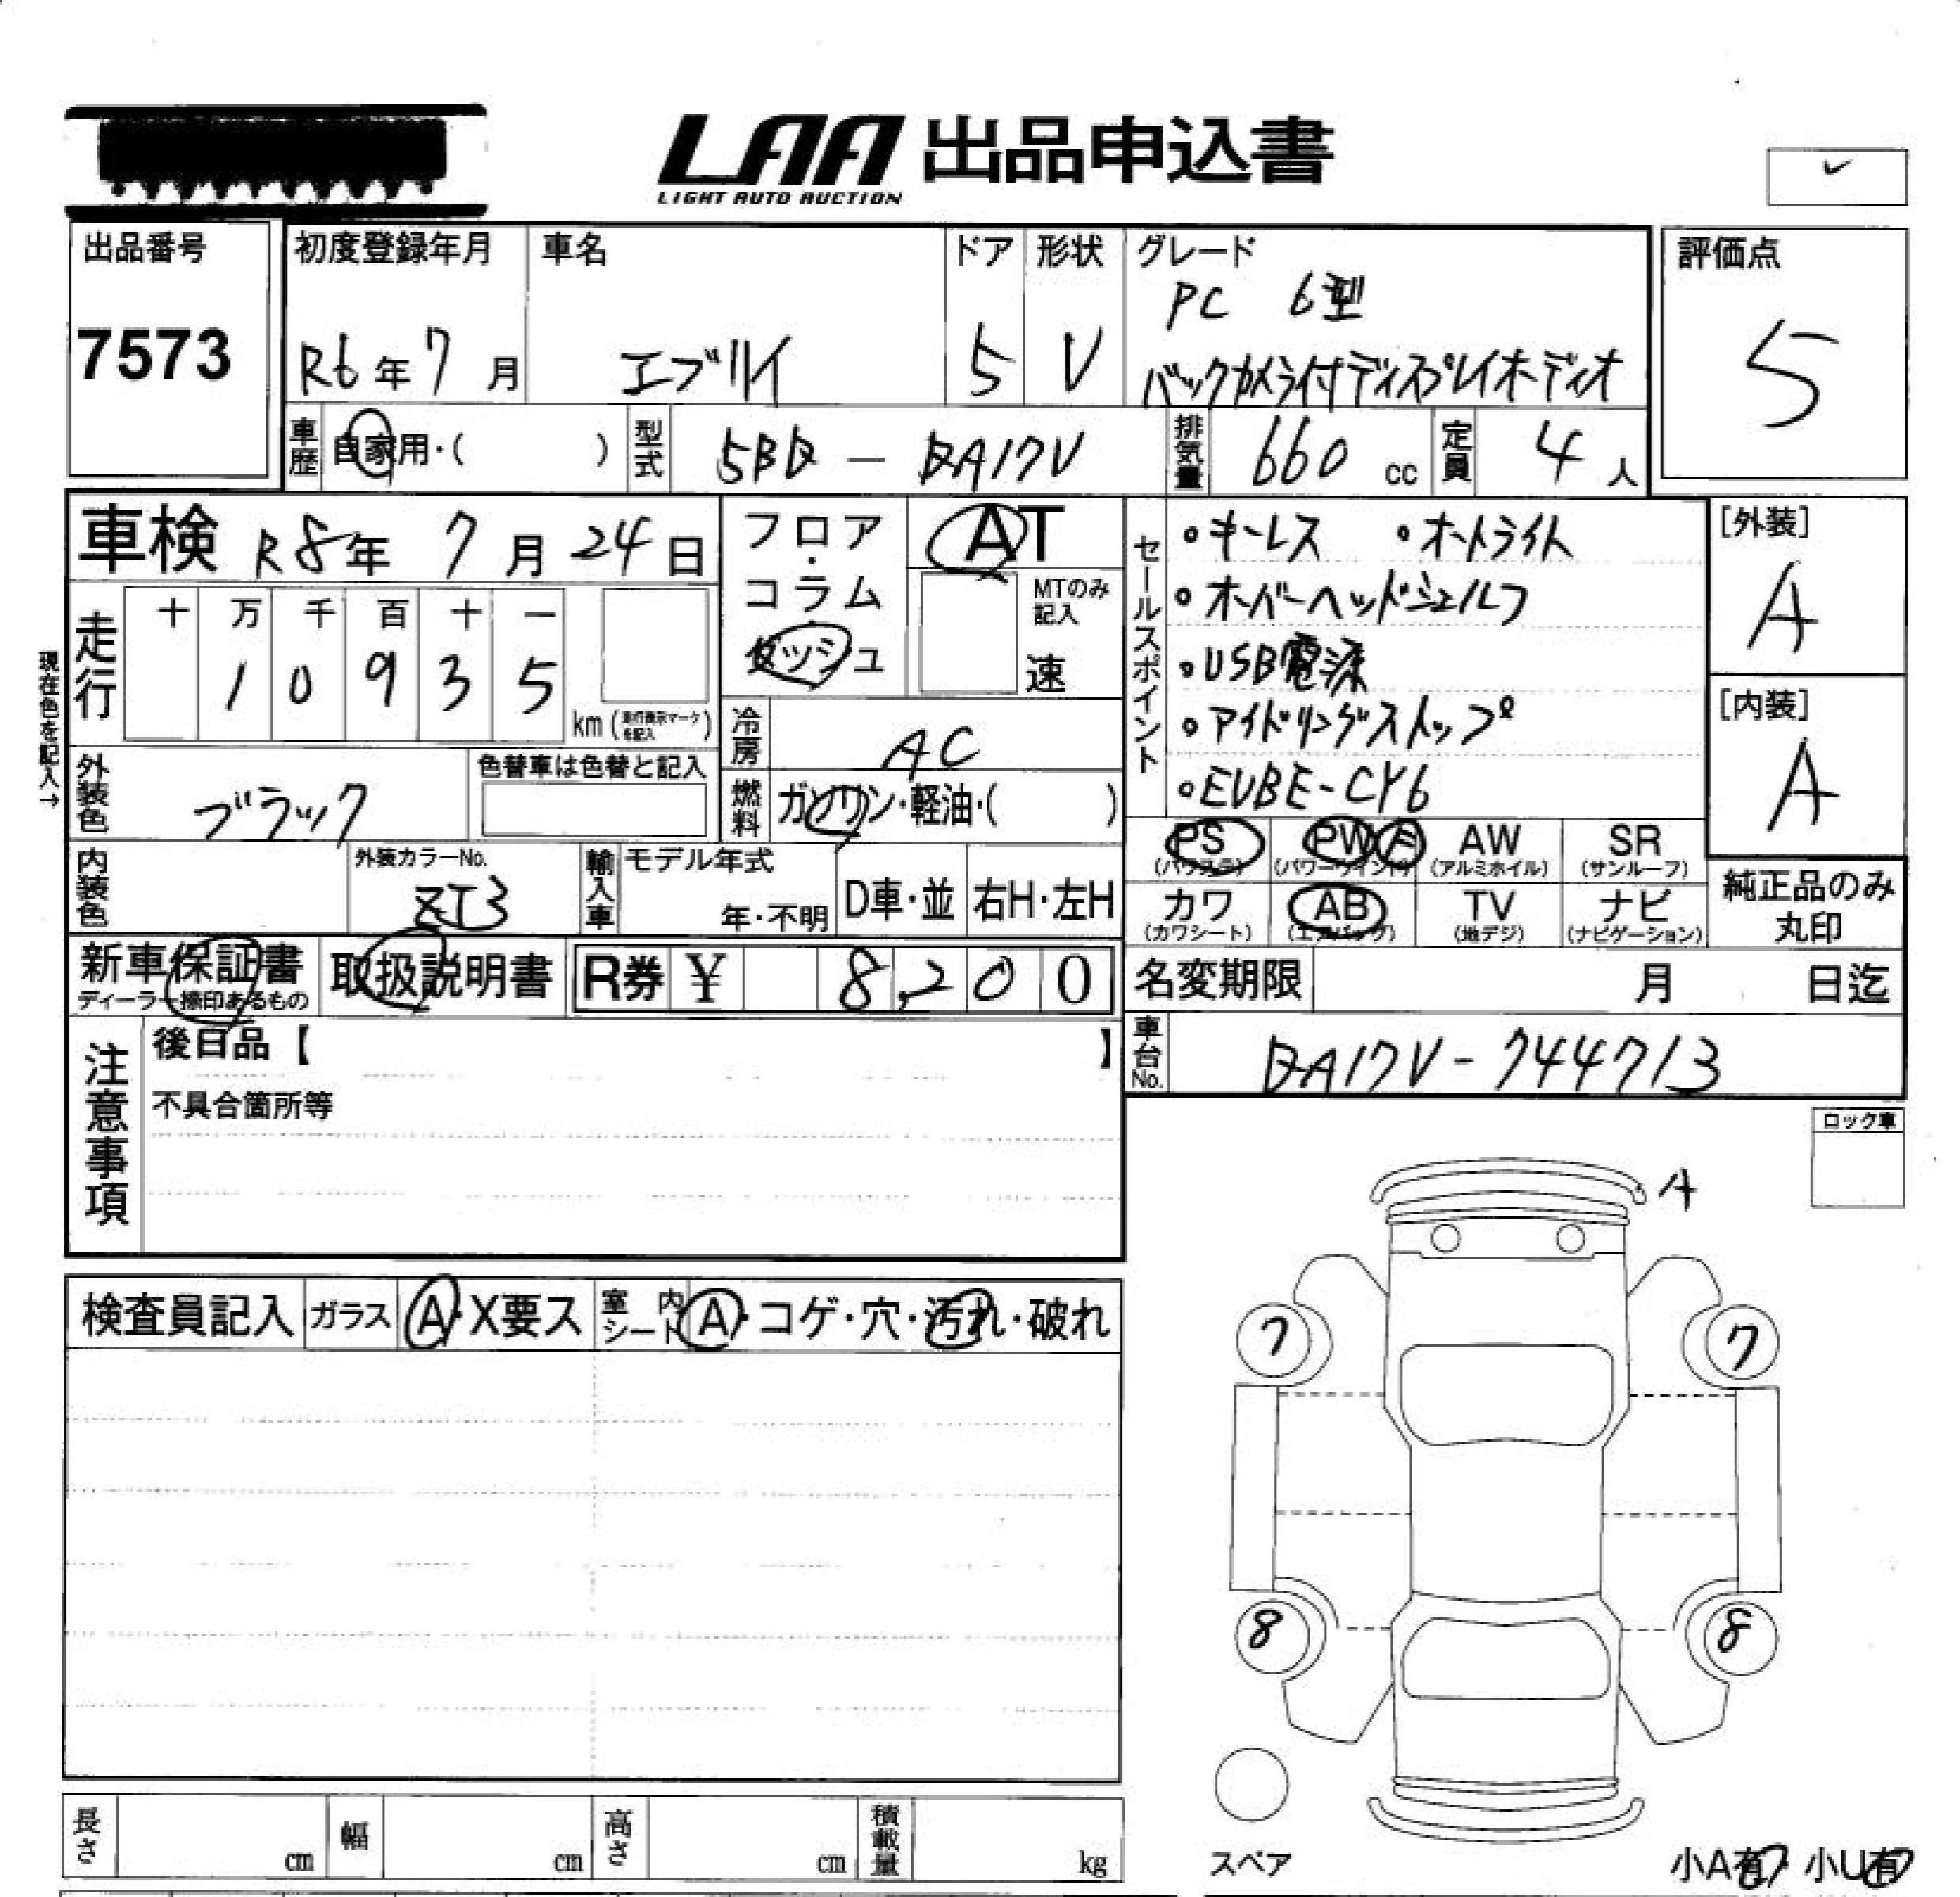 LAA 出品申込書
LIGHT AUTO AUCTION
出品番号
7573
初度登録年月
R6年7月
車名
エブリイ
ドア
5
形状
V
グレード
PC 6型
バックカメラ付ディスプレイオーディオ
評価点
5
車歴 自家用・( )
型式 5BD - DA17V
排気量 660 cc
定員 4人
車検 R8年 7月 24日
現在色を記入→
走行
十 万 千 百 十 一
1 0 9 3 5
km (走行表示マークを記入)
フロア・コラム
ダッシュ
AT
MTのみ記入
速
冷房 AC
燃料 ガソリン・軽油・( )
外装色 ブラック
色替車は色替と記入
内装色
外装カラーNo.
ZJ3
輸入車
モデル年式
年・不明
D車・並
右H・左H
セールスポイント
・キーレス ・オートライト
・オーバーヘッドシェルフ
・USB電源
・アイドリングストップ
・EVBE-CY6
[外装]
A
[内装]
A
PS (パワステ)
PW (パワーウインドウ)
AW (アルミホイル)
SR (サンルーフ)
カワ (カワシート)
AB (エアバッグ)
TV (地デジ)
ナビ (ナビゲーション)
純正品のみ
丸印
新車保証書
ディーラー捺印あるもの
取扱説明書
R券 ¥ 8,200
名変期限 月 日迄
車台No. DA17V-744713
注意事項
後日品【 】
不具合箇所等
ロック車
A
検査員記入
ガラス A・X要ス
室内シート A・コゲ・穴・汚れ・破れ
7 7
8 8
スペア
長さ cm
幅 cm
高さ cm
積載量 kg
小A有 小U有